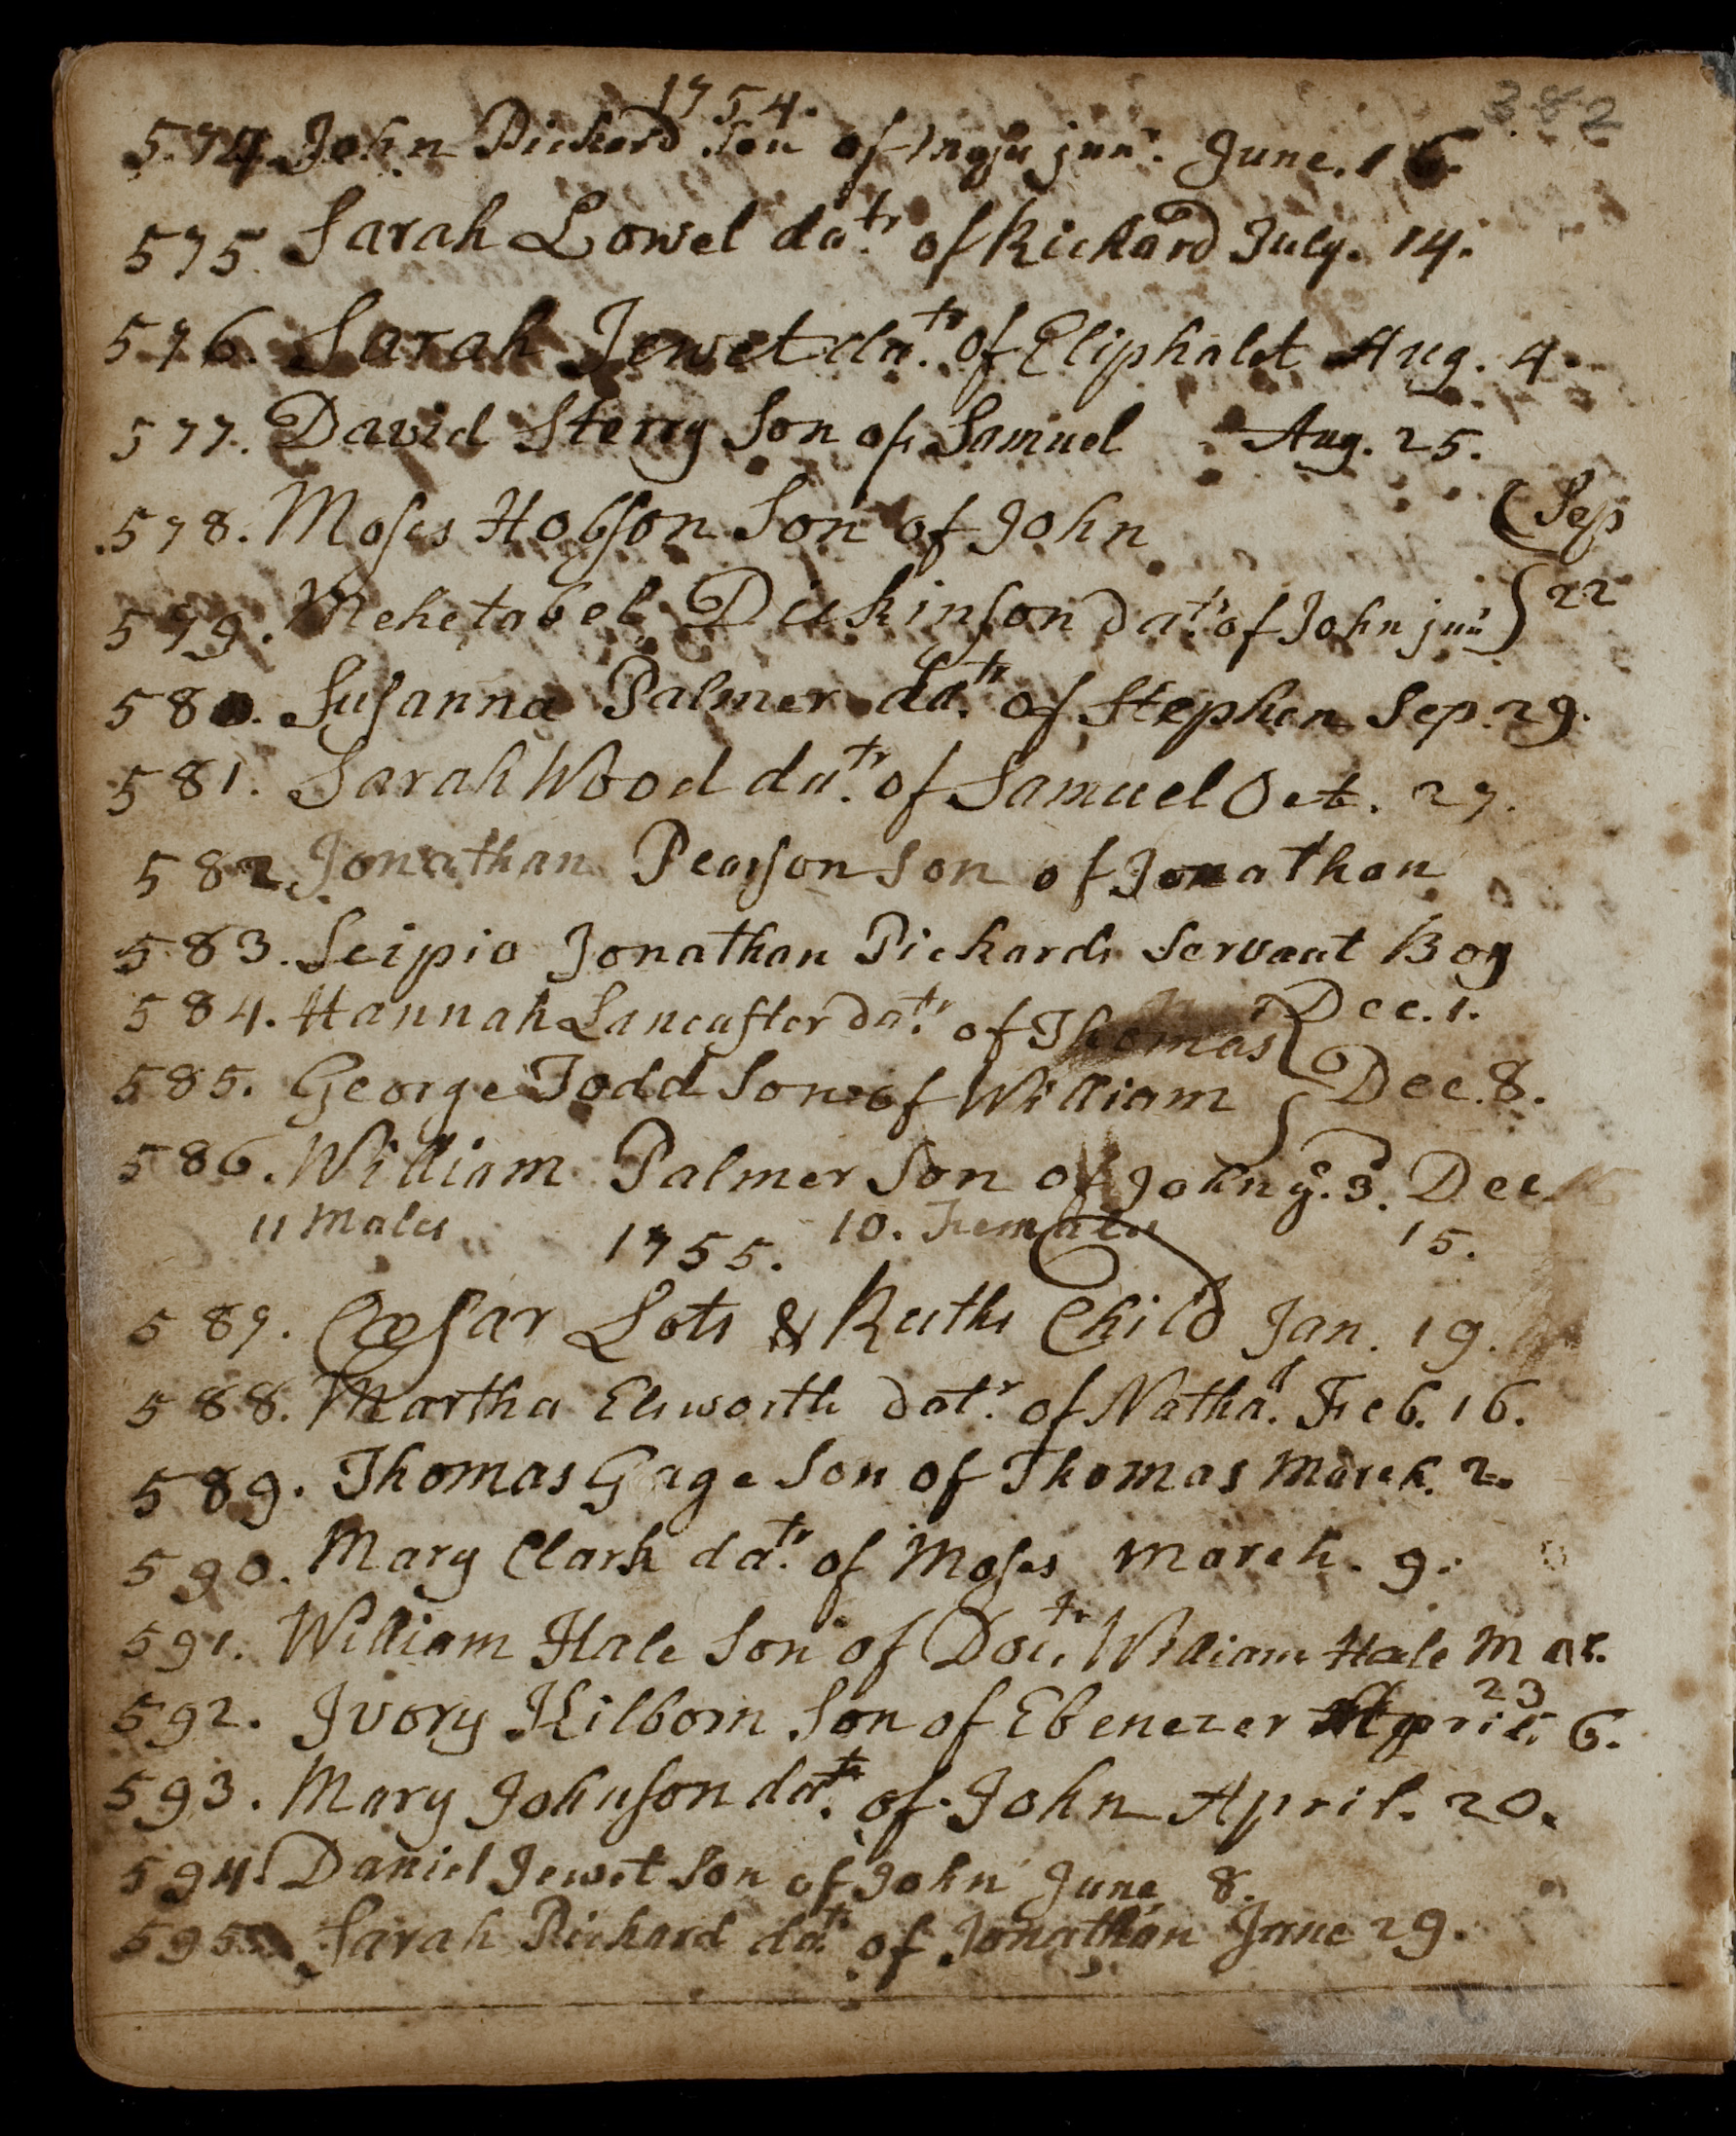 382
1754.
574. John Pickard Son of junr. June. 16.
575. Sarah Lowel datr. of Richard July. 14.
576. Sarah Jewet datr. of Eliphalet Aug. 4.
577. David Sterry Son of Samuel Aug. 25.
578. Moses Hobson Son of John (Sep
579. Mehetabel Dickinson datr. of John junr } 22
580. Susanna Palmer datr. of Stephen Sep. 29.
581. Sarah Wood datr. of Samuel Oct. 27.
582. Jonathan Pearson Son of Jonathan
583. Scipio Jonathan Pickards Servant Boy
Dec. 1.
584. Hannah Lancaster datr. of Thomas }
585. George Todd Son of William } Dec. 8.
586. William Palmer Son of John ye. 3d. Dec
11 Males 10. Females 15.
1755.
587. Cæsar Lots & Ruths Child Jan. 19.
588. Martha Elsworth datr. of Nathal. Feb. 16.
589. Thomas Gage Son of Thomas March. 2.
590. Mary Clark datr. of Moses March. 9.
591. William Hale Son of Doctr. William Hale Mar.
23
592. Ivory Kilborn Son of Ebenezer April. 6.
593. Mary Johnson datr. of John April. 20.
594. Daniel Jewet Son of John June 8.
595. Sarah Pickard datr. of Jonathan June 29.